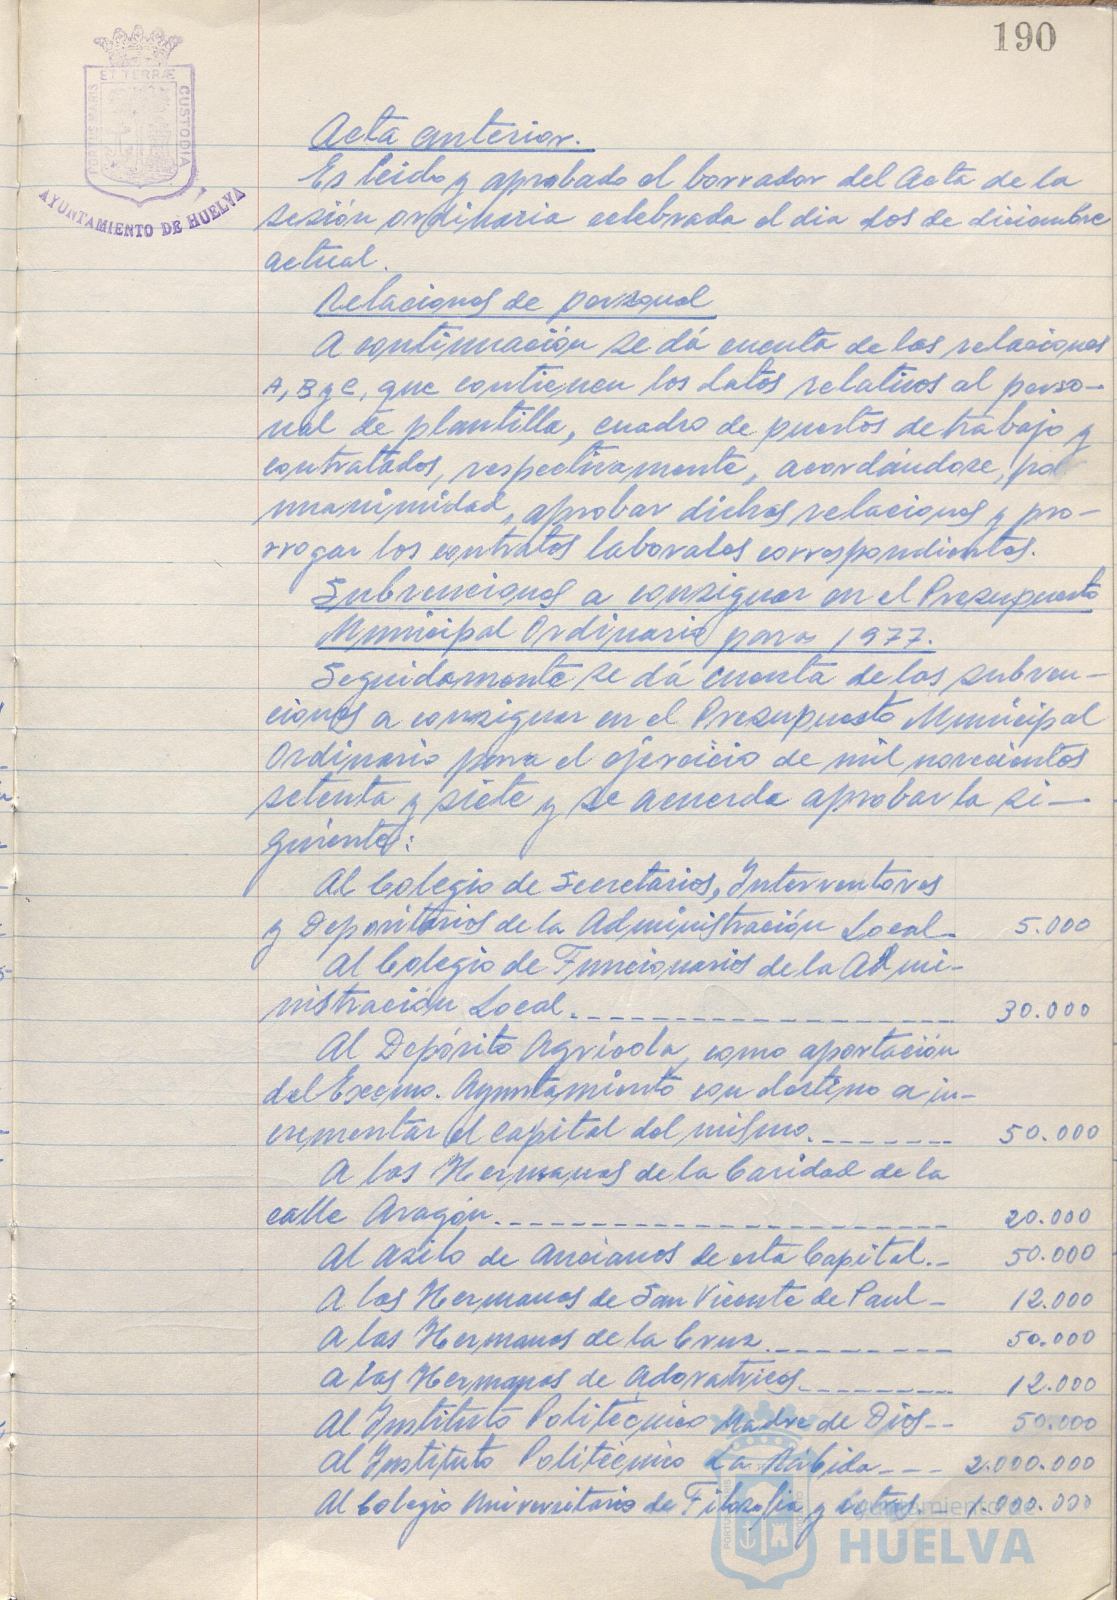 190
PORTUS MARIS
ET TERRÆ
CUSTODIA
AYUNTAMIENTO DE HUELVA
Acta anterior.
Es leido y aprobado el borrador del Acta de la
sesión ordinaria celebrada el dia dos de diciembre
actual.
Relaciones de personal
A continuación se dá cuenta de las relaciones
A, B y C, que contienen los datos relativos al perso-
nal de plantilla, cuadro de puestos de trabajo y
contratados, respectivamente, acordándose, por
unanimidad, aprobar dichas relaciones y pro-
rrogar los contratos laborales correspondientes.
Subvenciones a consignar en el Presupuesto
Municipal Ordinario para 1977.
Seguidamente se dá cuenta de las subven-
ciones a consignar en el Presupuesto Municipal
Ordinario para el ejercicio de mil novecientos
setenta y siete y se acuerda aprobar la si-
guiente:
Al Colegio de Secretarios, Interventores
y Depositarios de la Administración Local- 5.000
Al Colegio de Funcionarios de la Admi-
nistración Local. 30.000
Al Depósito Agrícola, como aportación
del Excmo. Ayuntamiento con destino a in-
crementar el capital del mismo. 50.000
A las Hermanas de la Caridad de la
calle Aragón. 20.000
Al Asilo de Ancianos de esta Capital.- 50.000
A las Hermanas de San Vicente de Paul- 12.000
A las Hermanas de la Cruz. 50.000
A las Hermanas de Adoratrices 12.000
Al Instituto Politécnico Madre de Dios-- 50.000
Al Instituto Politécnico La Rábida--- 2.000.000
Al Colegio Universitario de Filosofia y Letras.- 1.000.000
Ayuntamiento de
HUELVA